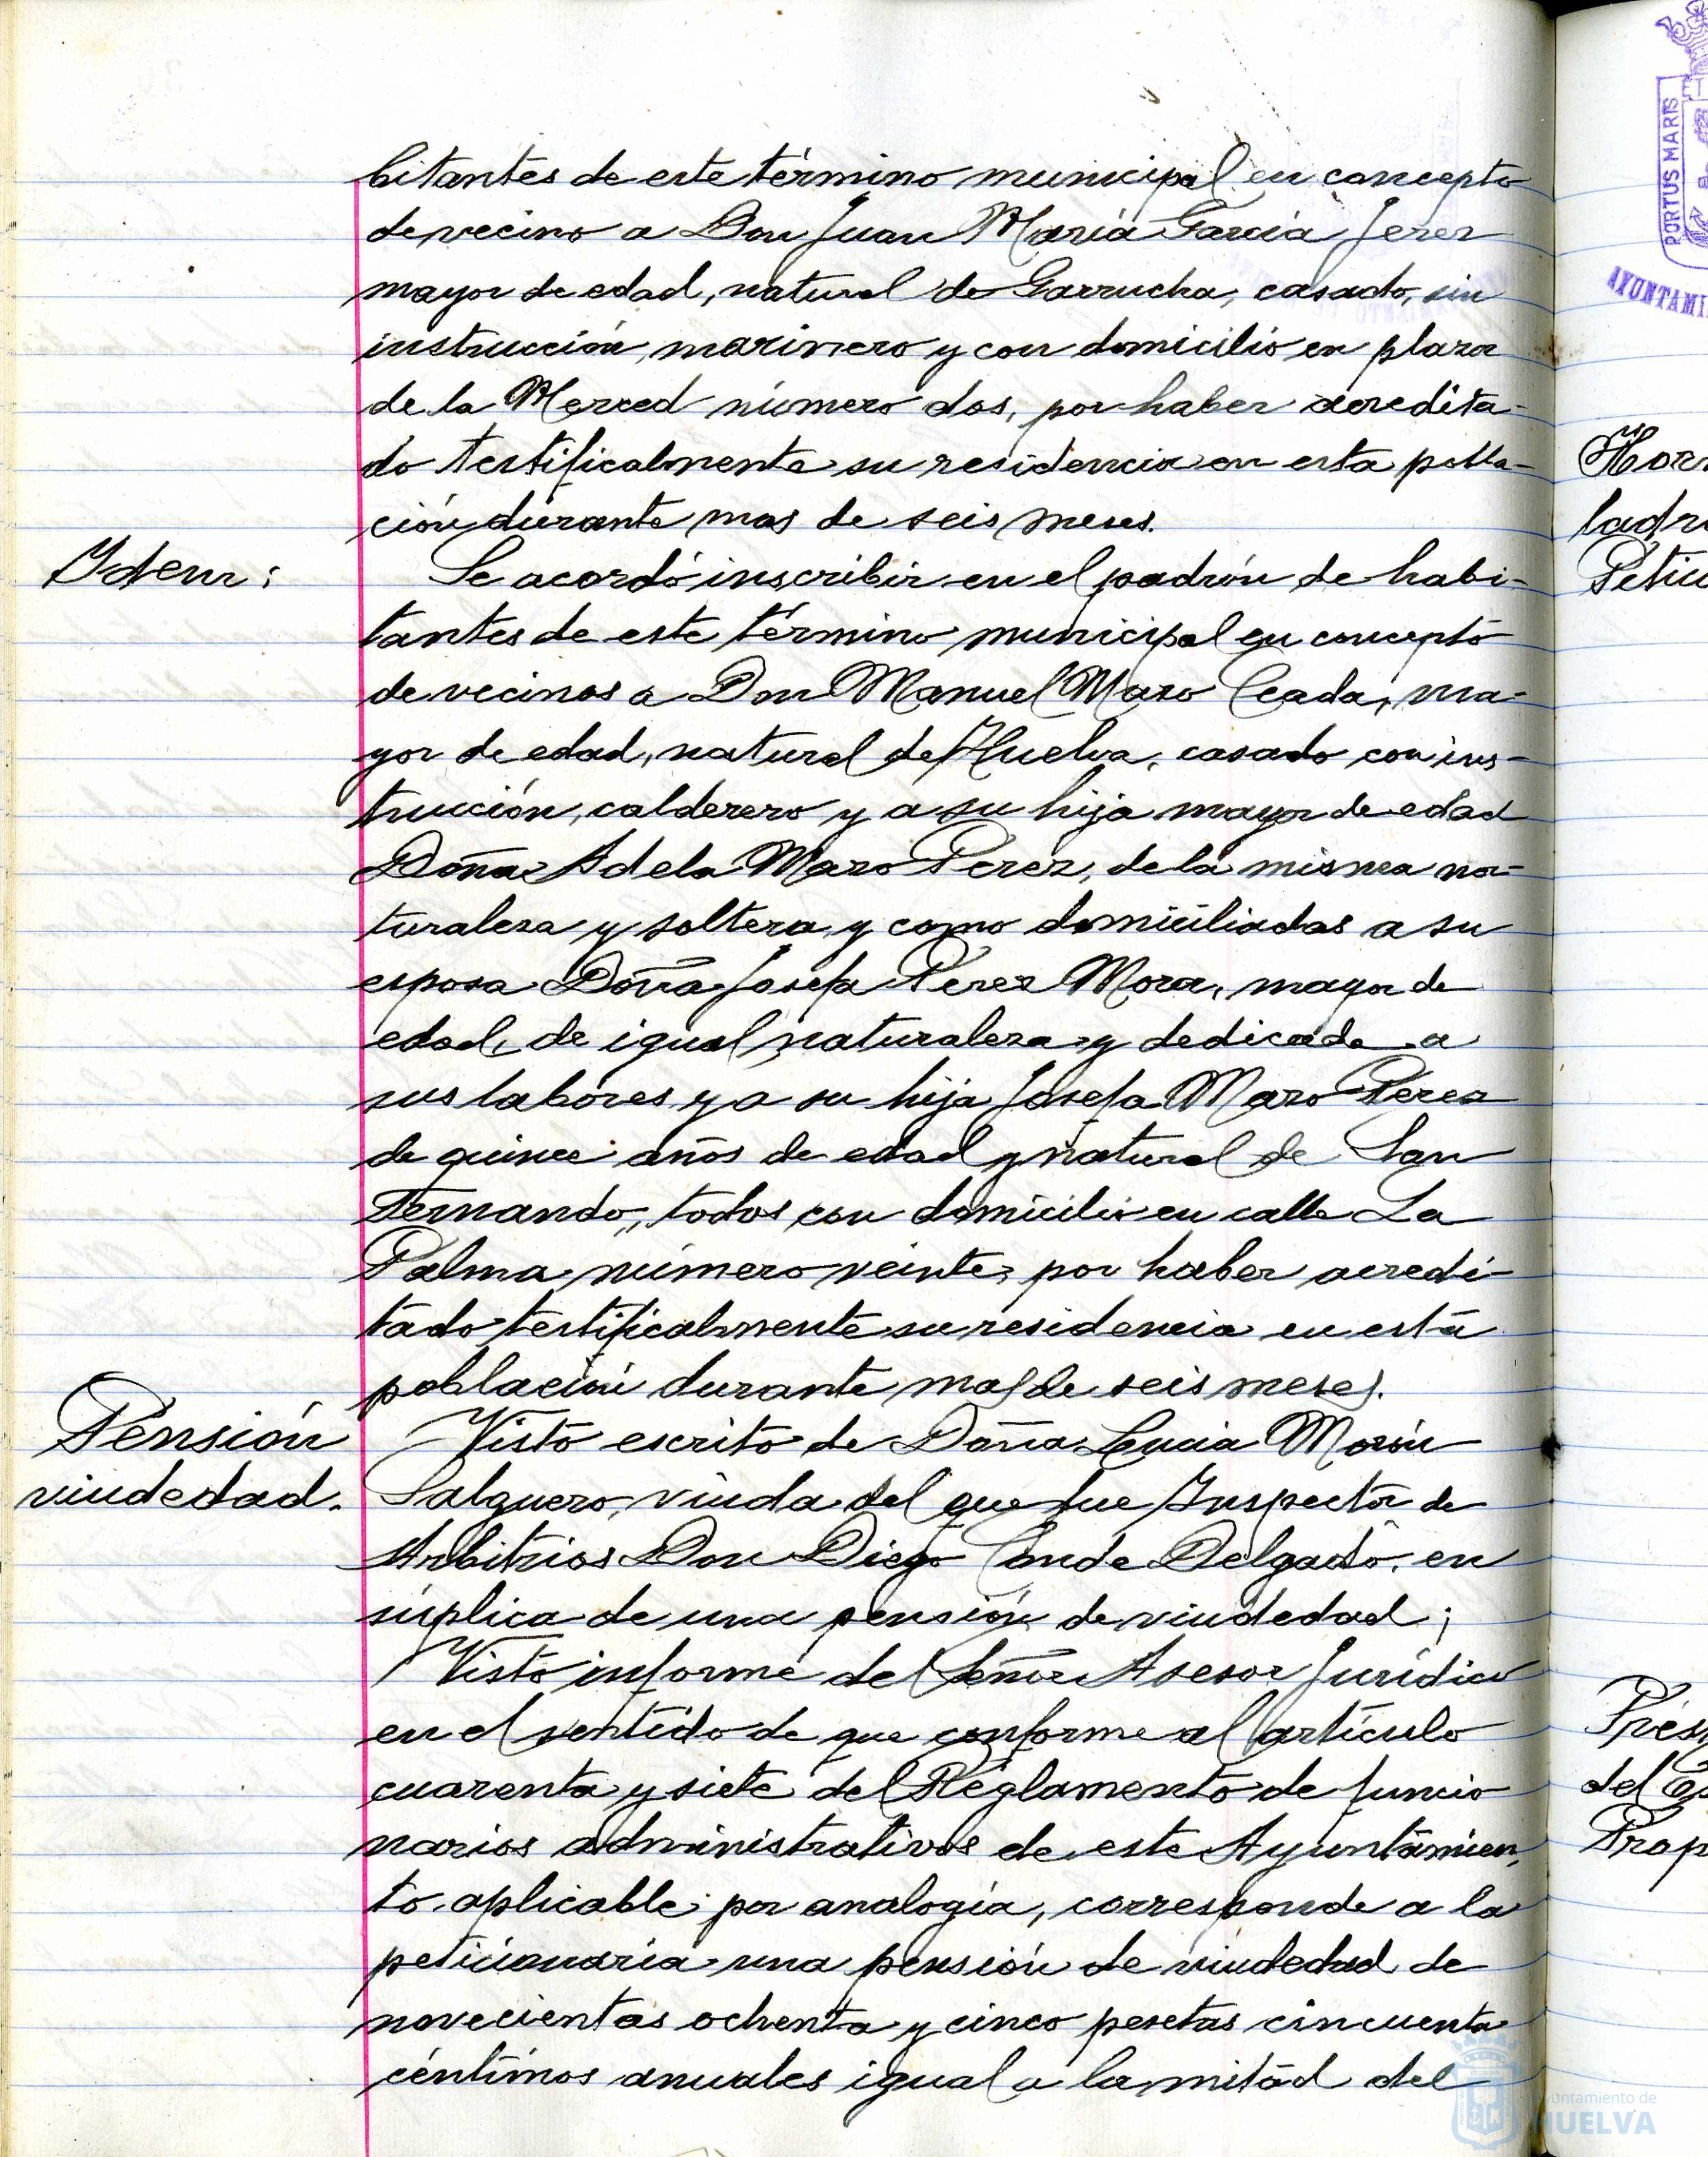 bitantes de este término municipal en concepto
de vecino a Don Juan María García Jerez
mayor de edad, natural de Garrucha, casado, sin
instrucción, marinero y con domicilio en plaza
de la Merced número dos, por haber acredita-
do testificalmente su residencia en esta pobla-
ción durante mas de seis meses.
Idem:
Se acordó inscribir en el padrón de habi-
tantes de este término municipal en concepto
de vecinos a Don Manuel Mazo Ceada, ma-
yor de edad, natural de Huelva, casado con ins-
trucción, calderero y a su hija mayor de edad
Doña Adela Mazo Perez, de la misma na-
turaleza y soltera y como domiciliadas a su
esposa Doña Josefa Perez Mora, mayor de
edad, de igual naturaleza y dedicada a
sus labores y a su hija Josefa Mazo Perez
de quince años de edad y natural de San
Fernando, todos con domicilio en calle La
Palma número veinte, por haber acredi-
tado testificalmente su residencia en esta
población durante mas de seis meses.
Pensión
viudedad.
Visto escrito de Doña Lucia Morón
Salguero, viuda del que fue Inspector de
Arbitrios Don Diego Conde Delgado, en
súplica de una pensión de viudedad;
Visto informe del Señor Asesor Jurídico
en el sentido de que conforme al artículo
cuarenta y siete del Reglamento de funcio
narios administrativos de este Ayuntamien-
to, aplicable por analogía, corresponde a la
peticionaria una pensión de viudedad de
novecientas ochenta y cinco pesetas cincuenta
céntimos anuales igual a la mitad del
PORTUS MARIS
AYUNTAMI
Horn
ladri
Petic
Prés
del
Prop
Ayuntamiento de
HUELVA